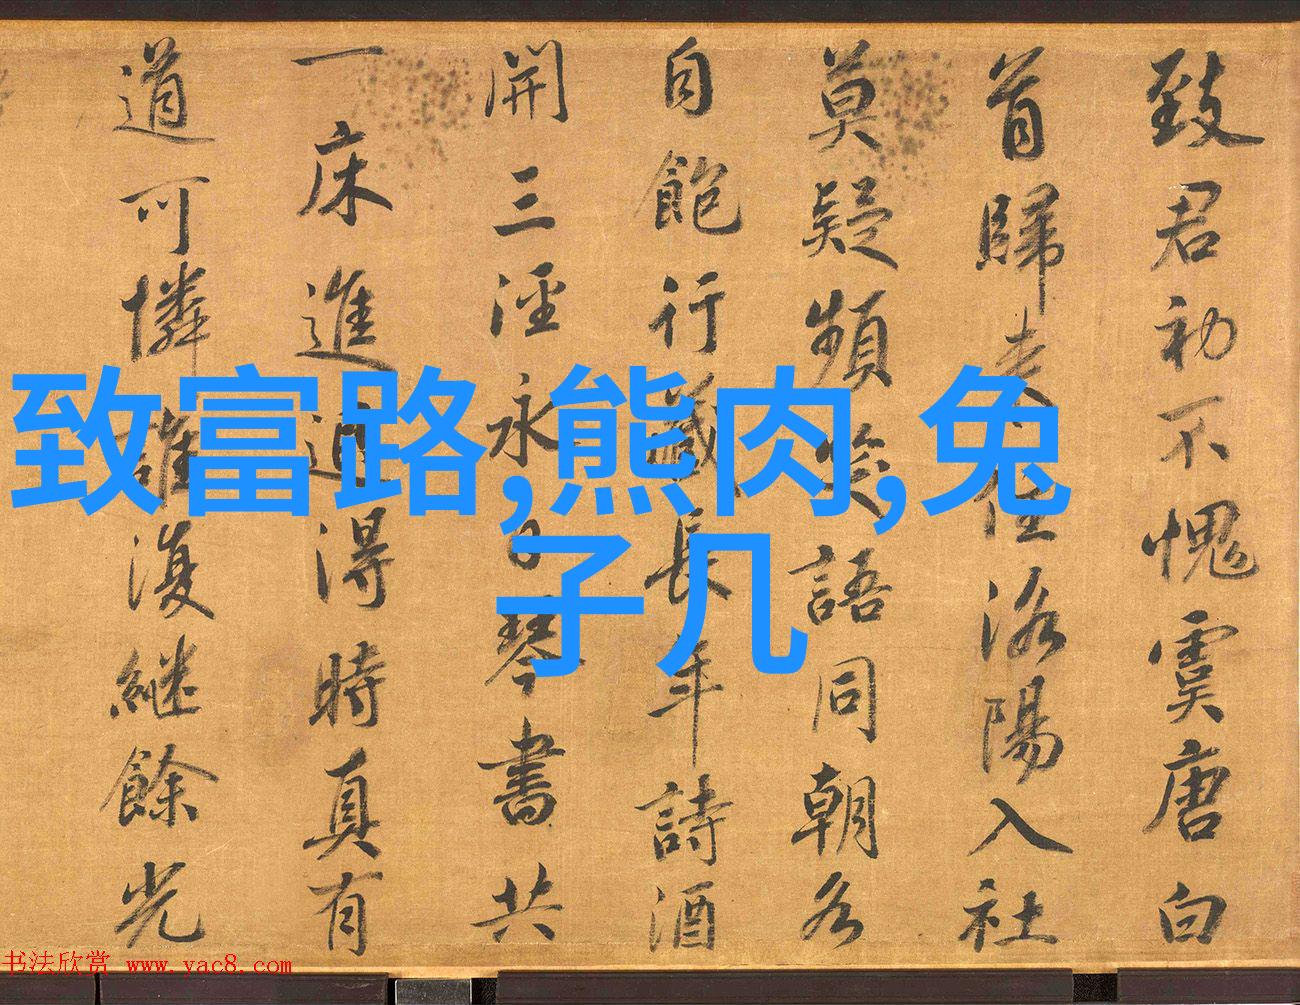 致君初不愧虞唐白
首歸來住洛陽入社
莫疑頻笑語同朝各
自飽行藏長年詩酒
開三涇永日琴書共
一床進退得時真有
道可憐誰復繼餘光
致富路,熊肉,兔
子几
书法欣赏 www.yac8.com